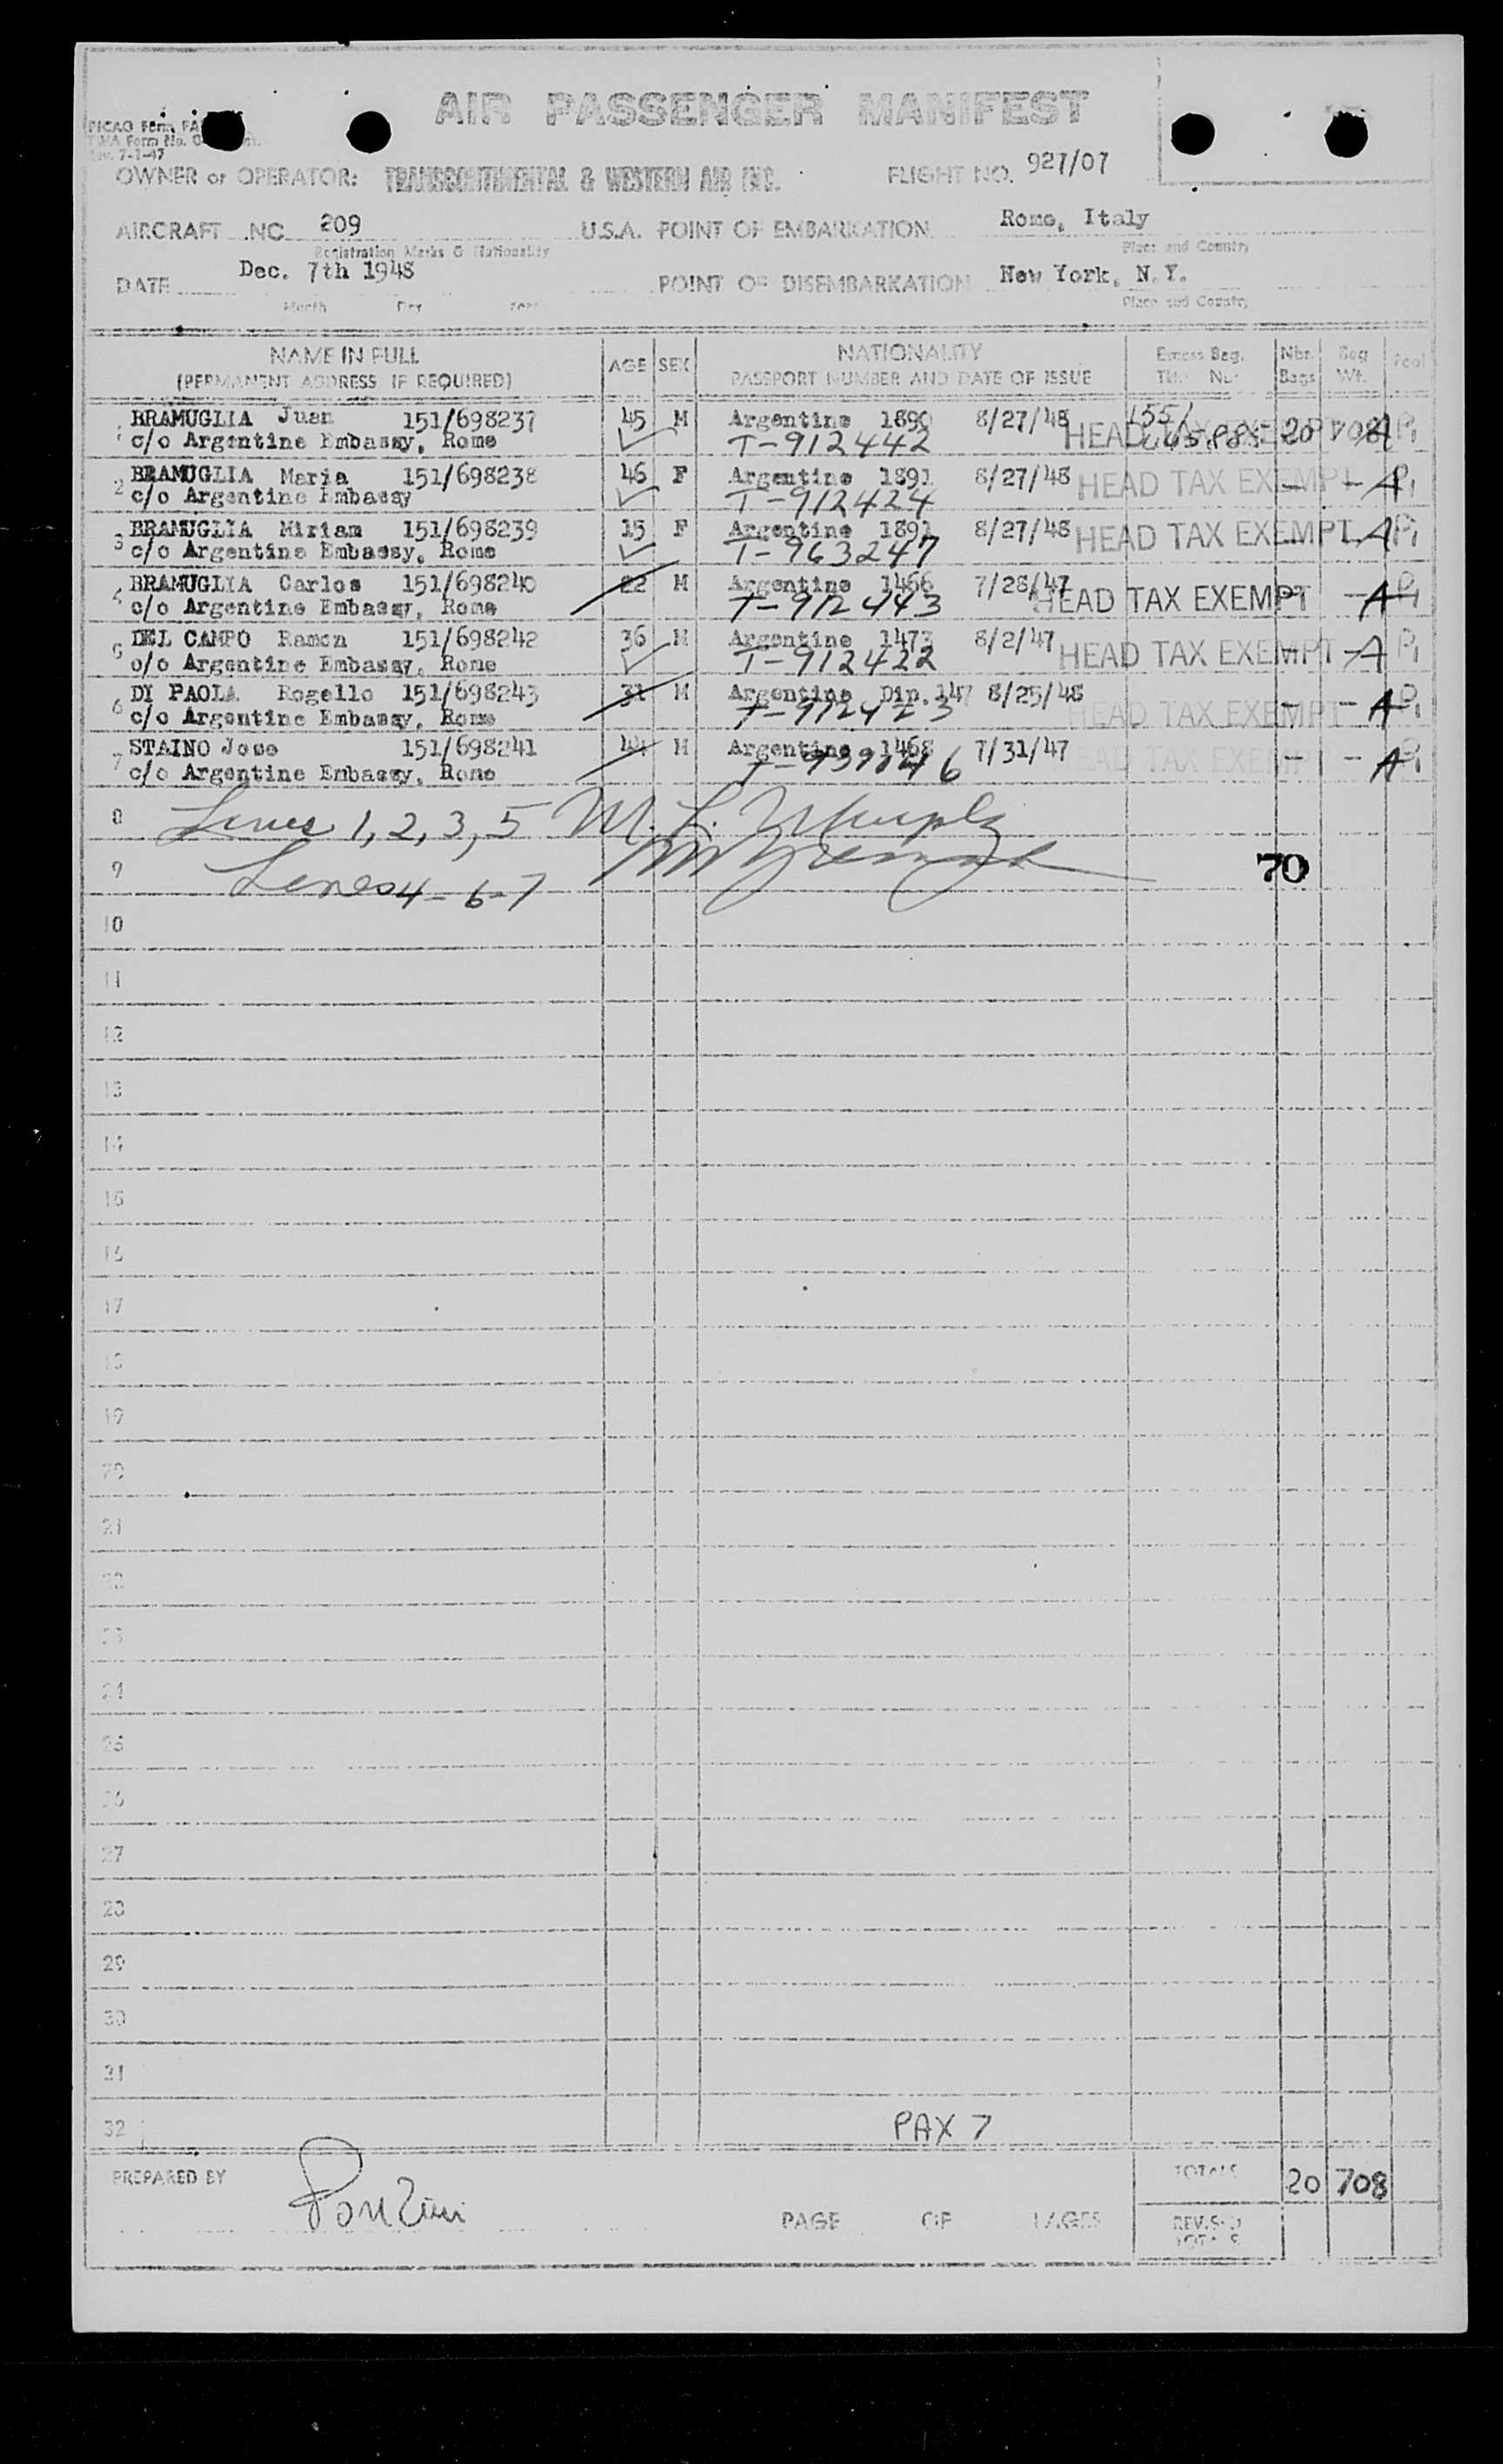 AIR PASSENGER MANIFEST
PICAO Form FA
TWA Form No.
Rev. 7-1-47
OWNER or OPERATOR: TRANSCONTINENTAL & WESTERN AIR INC. FLIGHT NO. 927/07
AIRCRAFT NC 209 U.S.A. POINT OF EMBARKATION Rome, Italy
Registration Marks & Nationality Place and Country
DATE Dec. 7th 1948 POINT OF DISEMBARKATION New York, N.Y.
Month Day Year Place and Country
NAME IN FULL AGE SEX NATIONALITY Excess Bag. Nbr. Bag
(PERMANENT ADDRESS IF REQUIRED) PASSPORT NUMBER AND DATE OF ISSUE Tkt. Nbr Bags Wt. Pool
1 BRAMUGLIA Juan 151/698237 45 M Argentine 1890 8/27/48 HEAD TAX EXEMPT 20 708 A
c/o Argentine Embassy, Rome T-912442
2 BRAMUGLIA Maria 151/698238 46 F Argentine 1891 8/27/48 HEAD TAX EXEMPT - - A
c/o Argentine Embassy T-912424
3 BRAMUGLIA Miriam 151/698239 15 F Argentine 1891 8/27/48 HEAD TAX EXEMPT A
c/o Argentine Embassy, Rome T-963247
4 BRAMUGLIA Carlos 151/698240 22 M Argentine 1466 7/28/47 HEAD TAX EXEMPT - A
c/o Argentine Embassy, Rome T-912443
5 DEL CAMPO Ramon 151/698242 36 M Argentine 1473 8/2/47 HEAD TAX EXEMPT - A
c/o Argentine Embassy, Rome T-912422
6 DI PAOLA Rogello 151/698243 31 M Argentine Dip. 147 8/25/48 HEAD TAX EXEMPT - - A
c/o Argentine Embassy, Rome T-912423
7 STAINO Jose 151/698241 44 M Argentine 1468 7/31/47 HEAD TAX EXEMPT - - A
c/o Argentine Embassy, Rome
8 Lines 1, 2, 3, 5 M. L. Murphy
9 Lines 4-6-7 70
10
11
12
13
14
15
16
17
18
19
20
21
22
23
24
25
26
27
28
29
30
31
32 PAX 7
PREPARED BY TOTALS 20 708
PAGE OF PAGES REVISED
TOTALS